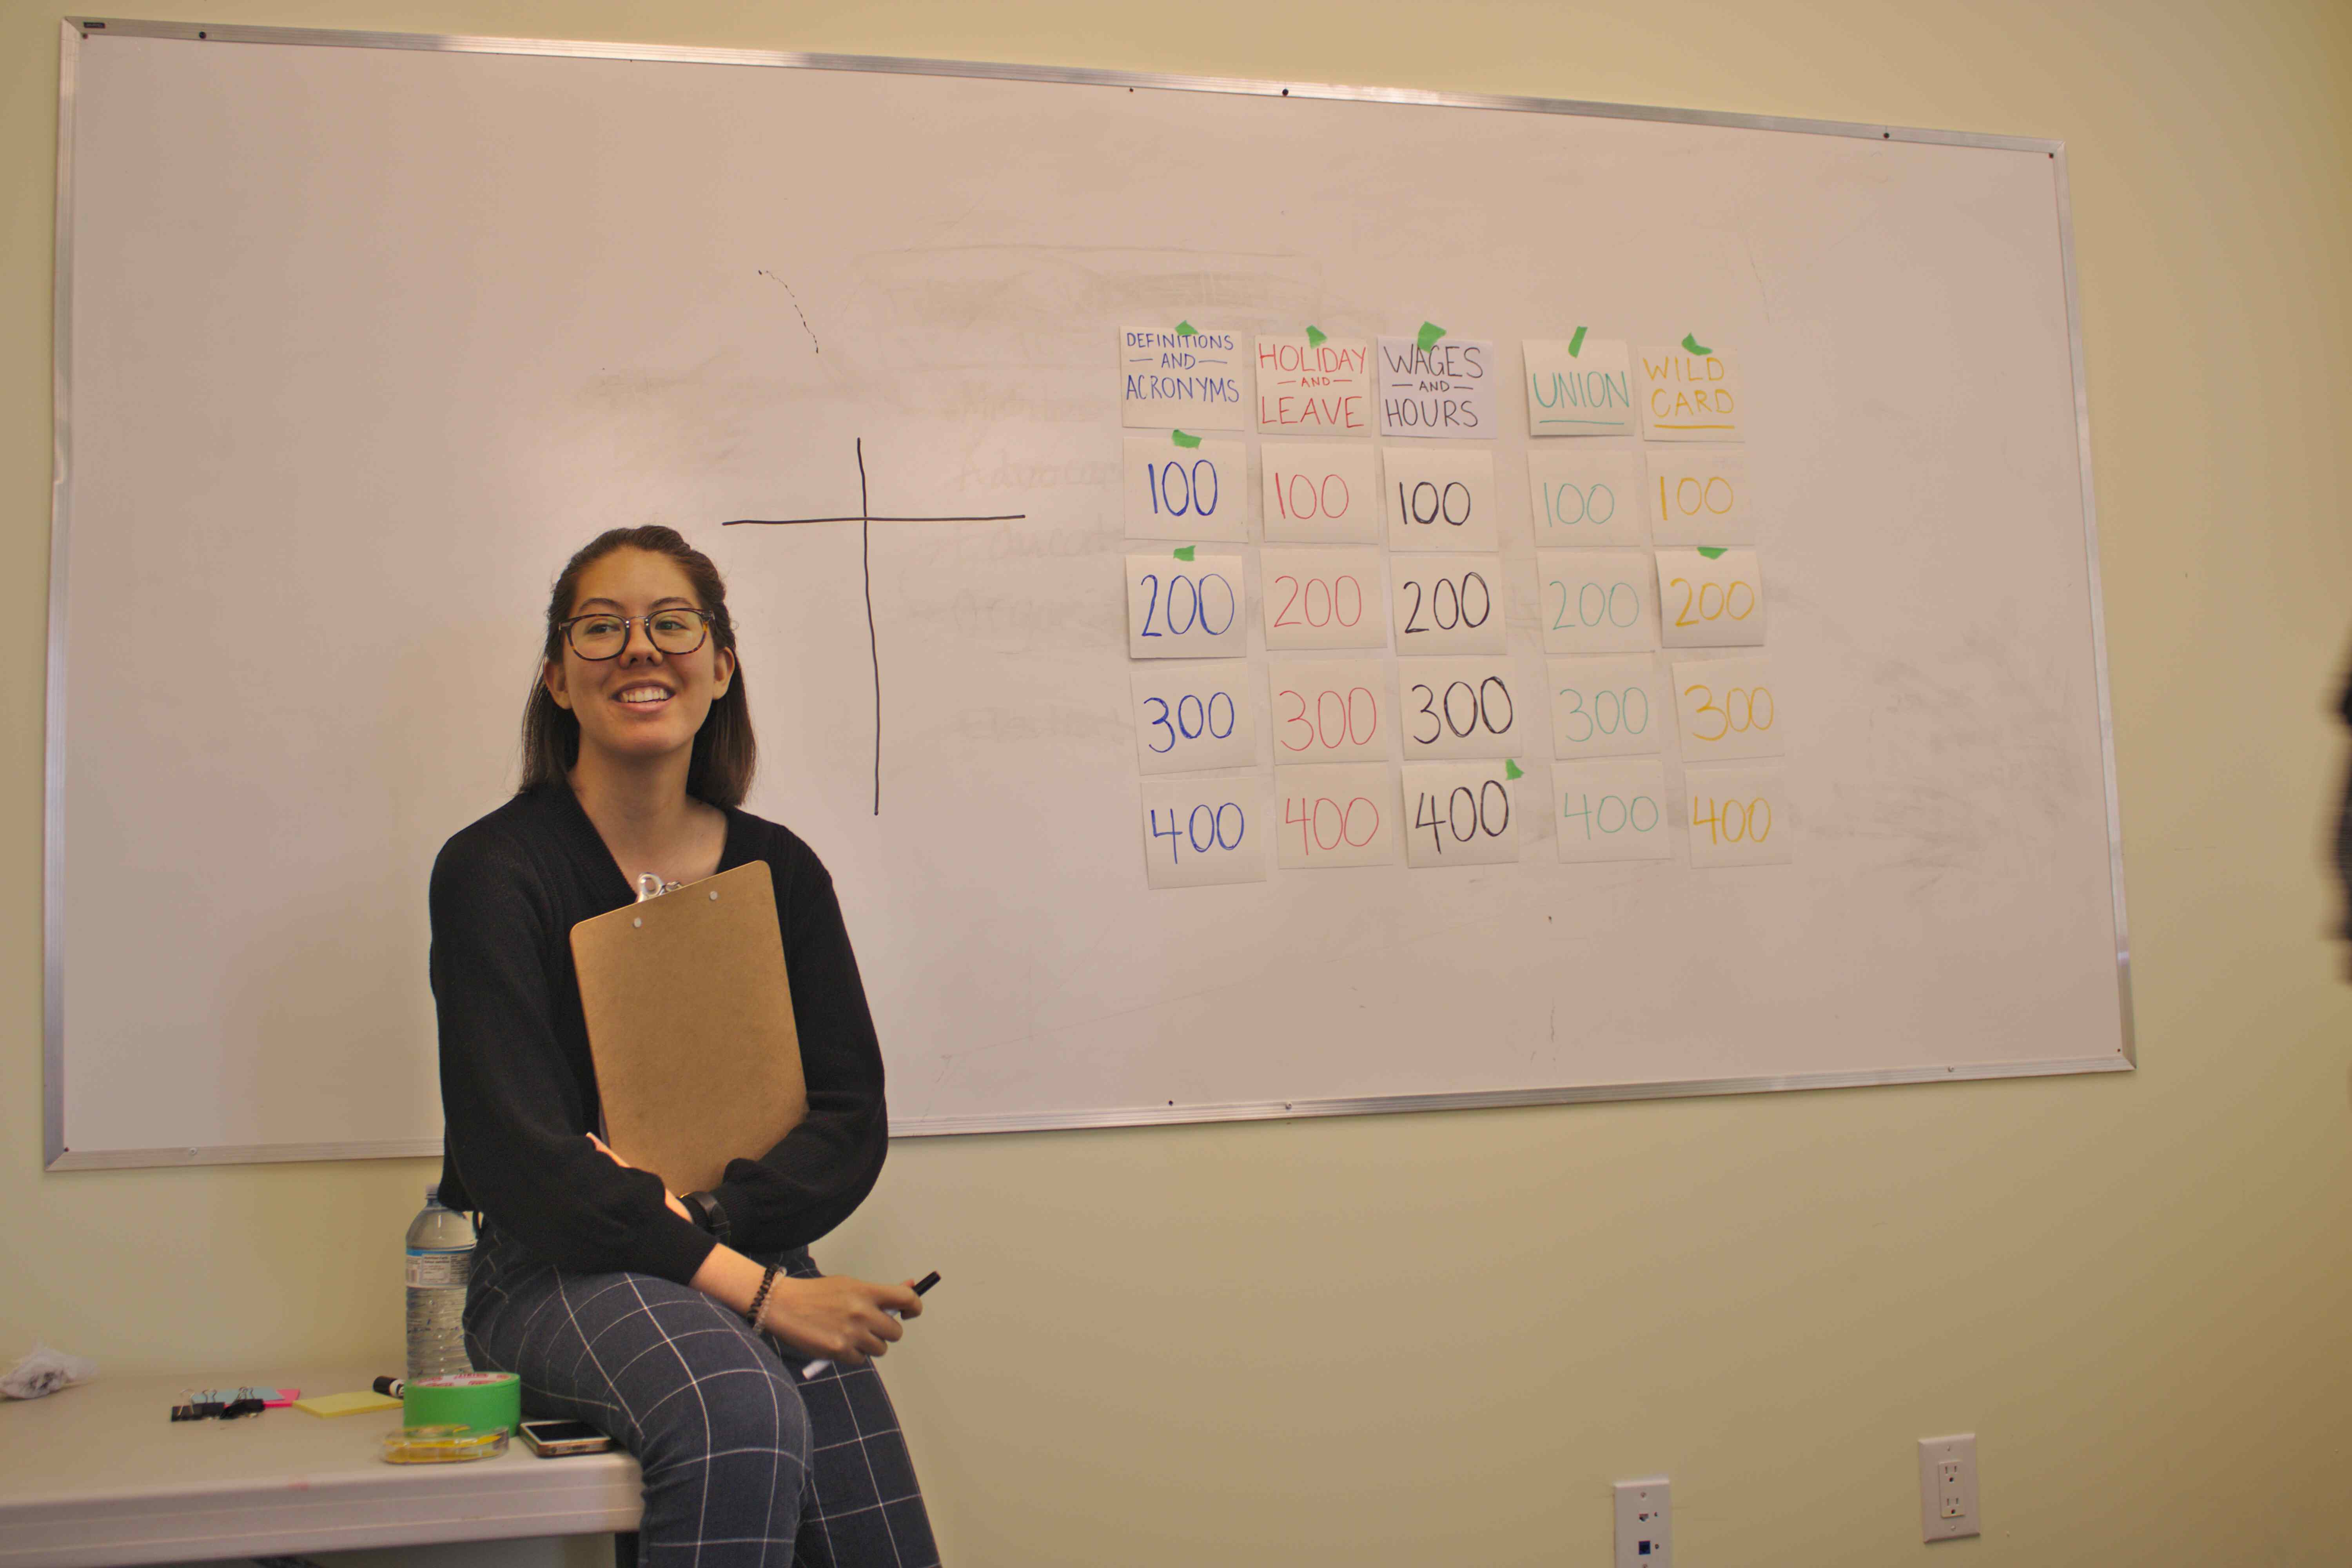 DEFINITIONS
AND
ACRONYMS
HOLIDAY
AND
LEAVE
WAGES
AND
HOURS
UNION
WILD
CARD
100 100 100 100 100
200 200 200 200 200
300 300 300 300 300
400 400 400 400 400